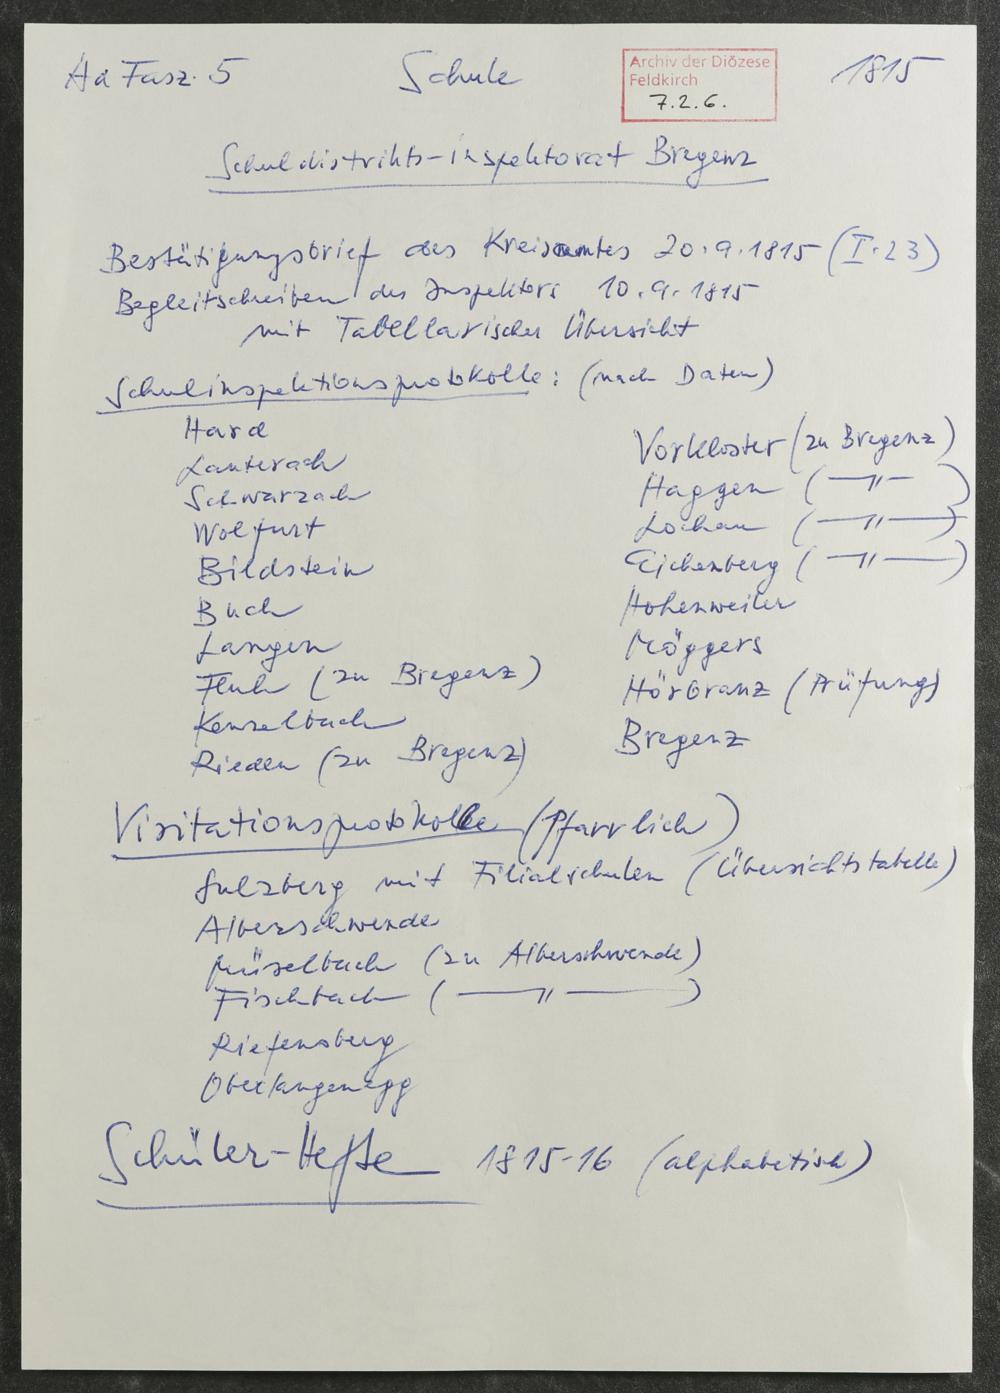 Ad Fasz. 5 Schule 1815
Archiv der Diözese
Feldkirch
7.2.6.
Schuldistrikts-inspektorat Bregenz
Bestätigungsbrief des Kreisamtes 20.9.1815 (I.23)
Begleitschreiben des Inspektors 10.9.1815
mit Tabellarischer Übersicht
Schulinspektionsprotokolle: (nach Daten)
Hard
Lauterach
Schwarzach
Wolfurt
Bildstein
Buch
Langen
Fluh (zu Bregenz)
Kennelbach
Rieden (zu Bregenz)
Vorkloster (zu Bregenz)
Haggen ( —〃— )
Lochau ( —〃— )
Eichenberg ( —〃— )
Hohenweiler
Möggers
Hörbranz (Prüfung)
Bregenz
Visitationsprotokolle (Pfarrlich)
Sulzberg mit Filialschulen (Übersichtstabelle)
Alberschwende
Müselbach (zu Alberschwende)
Fischbach ( —〃— )
Riefensberg
Oberlangenegg
Schüler-Hefte 1815-16 (alphabetisch)